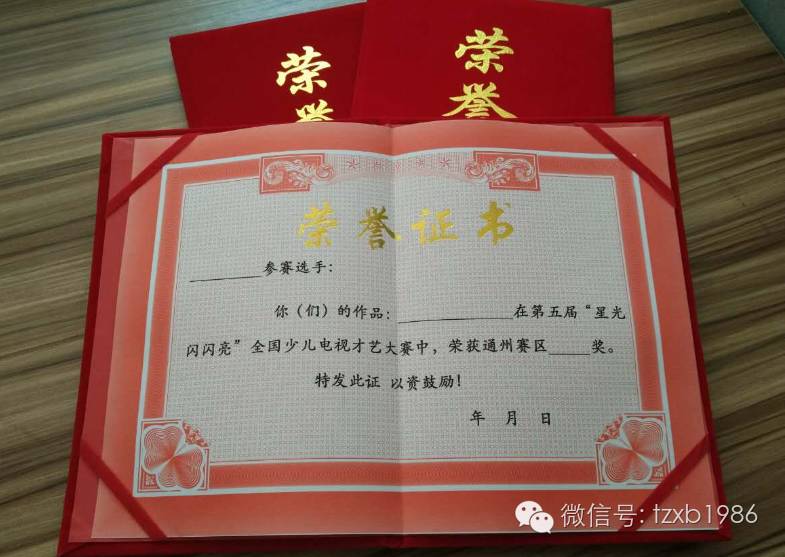 荣誉
荣誉
荣誉证书
________参赛选手：
你（们）的作品：____________在第五届“星光
闪闪亮”全国少儿电视才艺大赛中，荣获通州赛区_____奖。
特发此证 以资鼓励！
年 月 日
微信号: tzxb1986